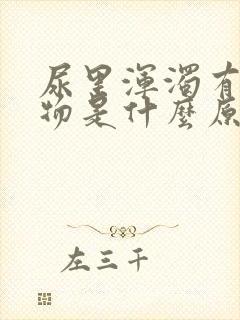 尿里渾濁有
物是什麼原
左三千